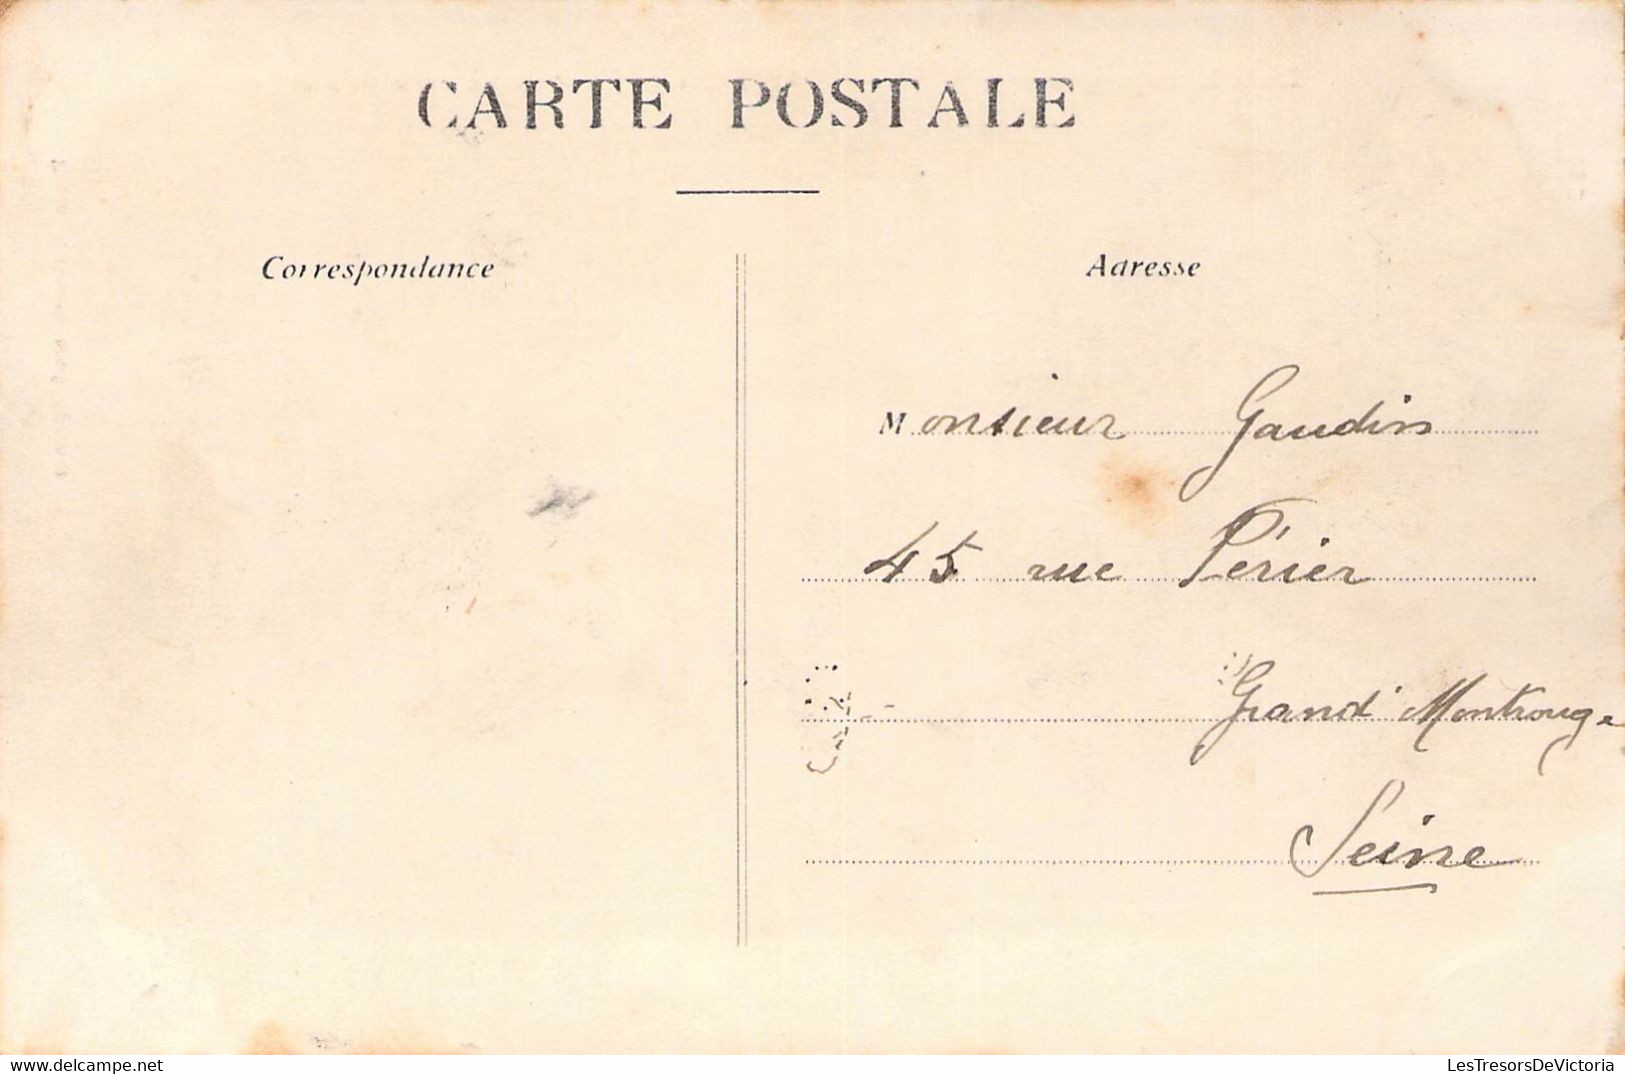 CARTE POSTALE
Correspondance
Adresse
Monsieur Gaudin
45 rue Périer
Grand Montrouge
Seine
delcampe.net
LesTresorsDeVictoria